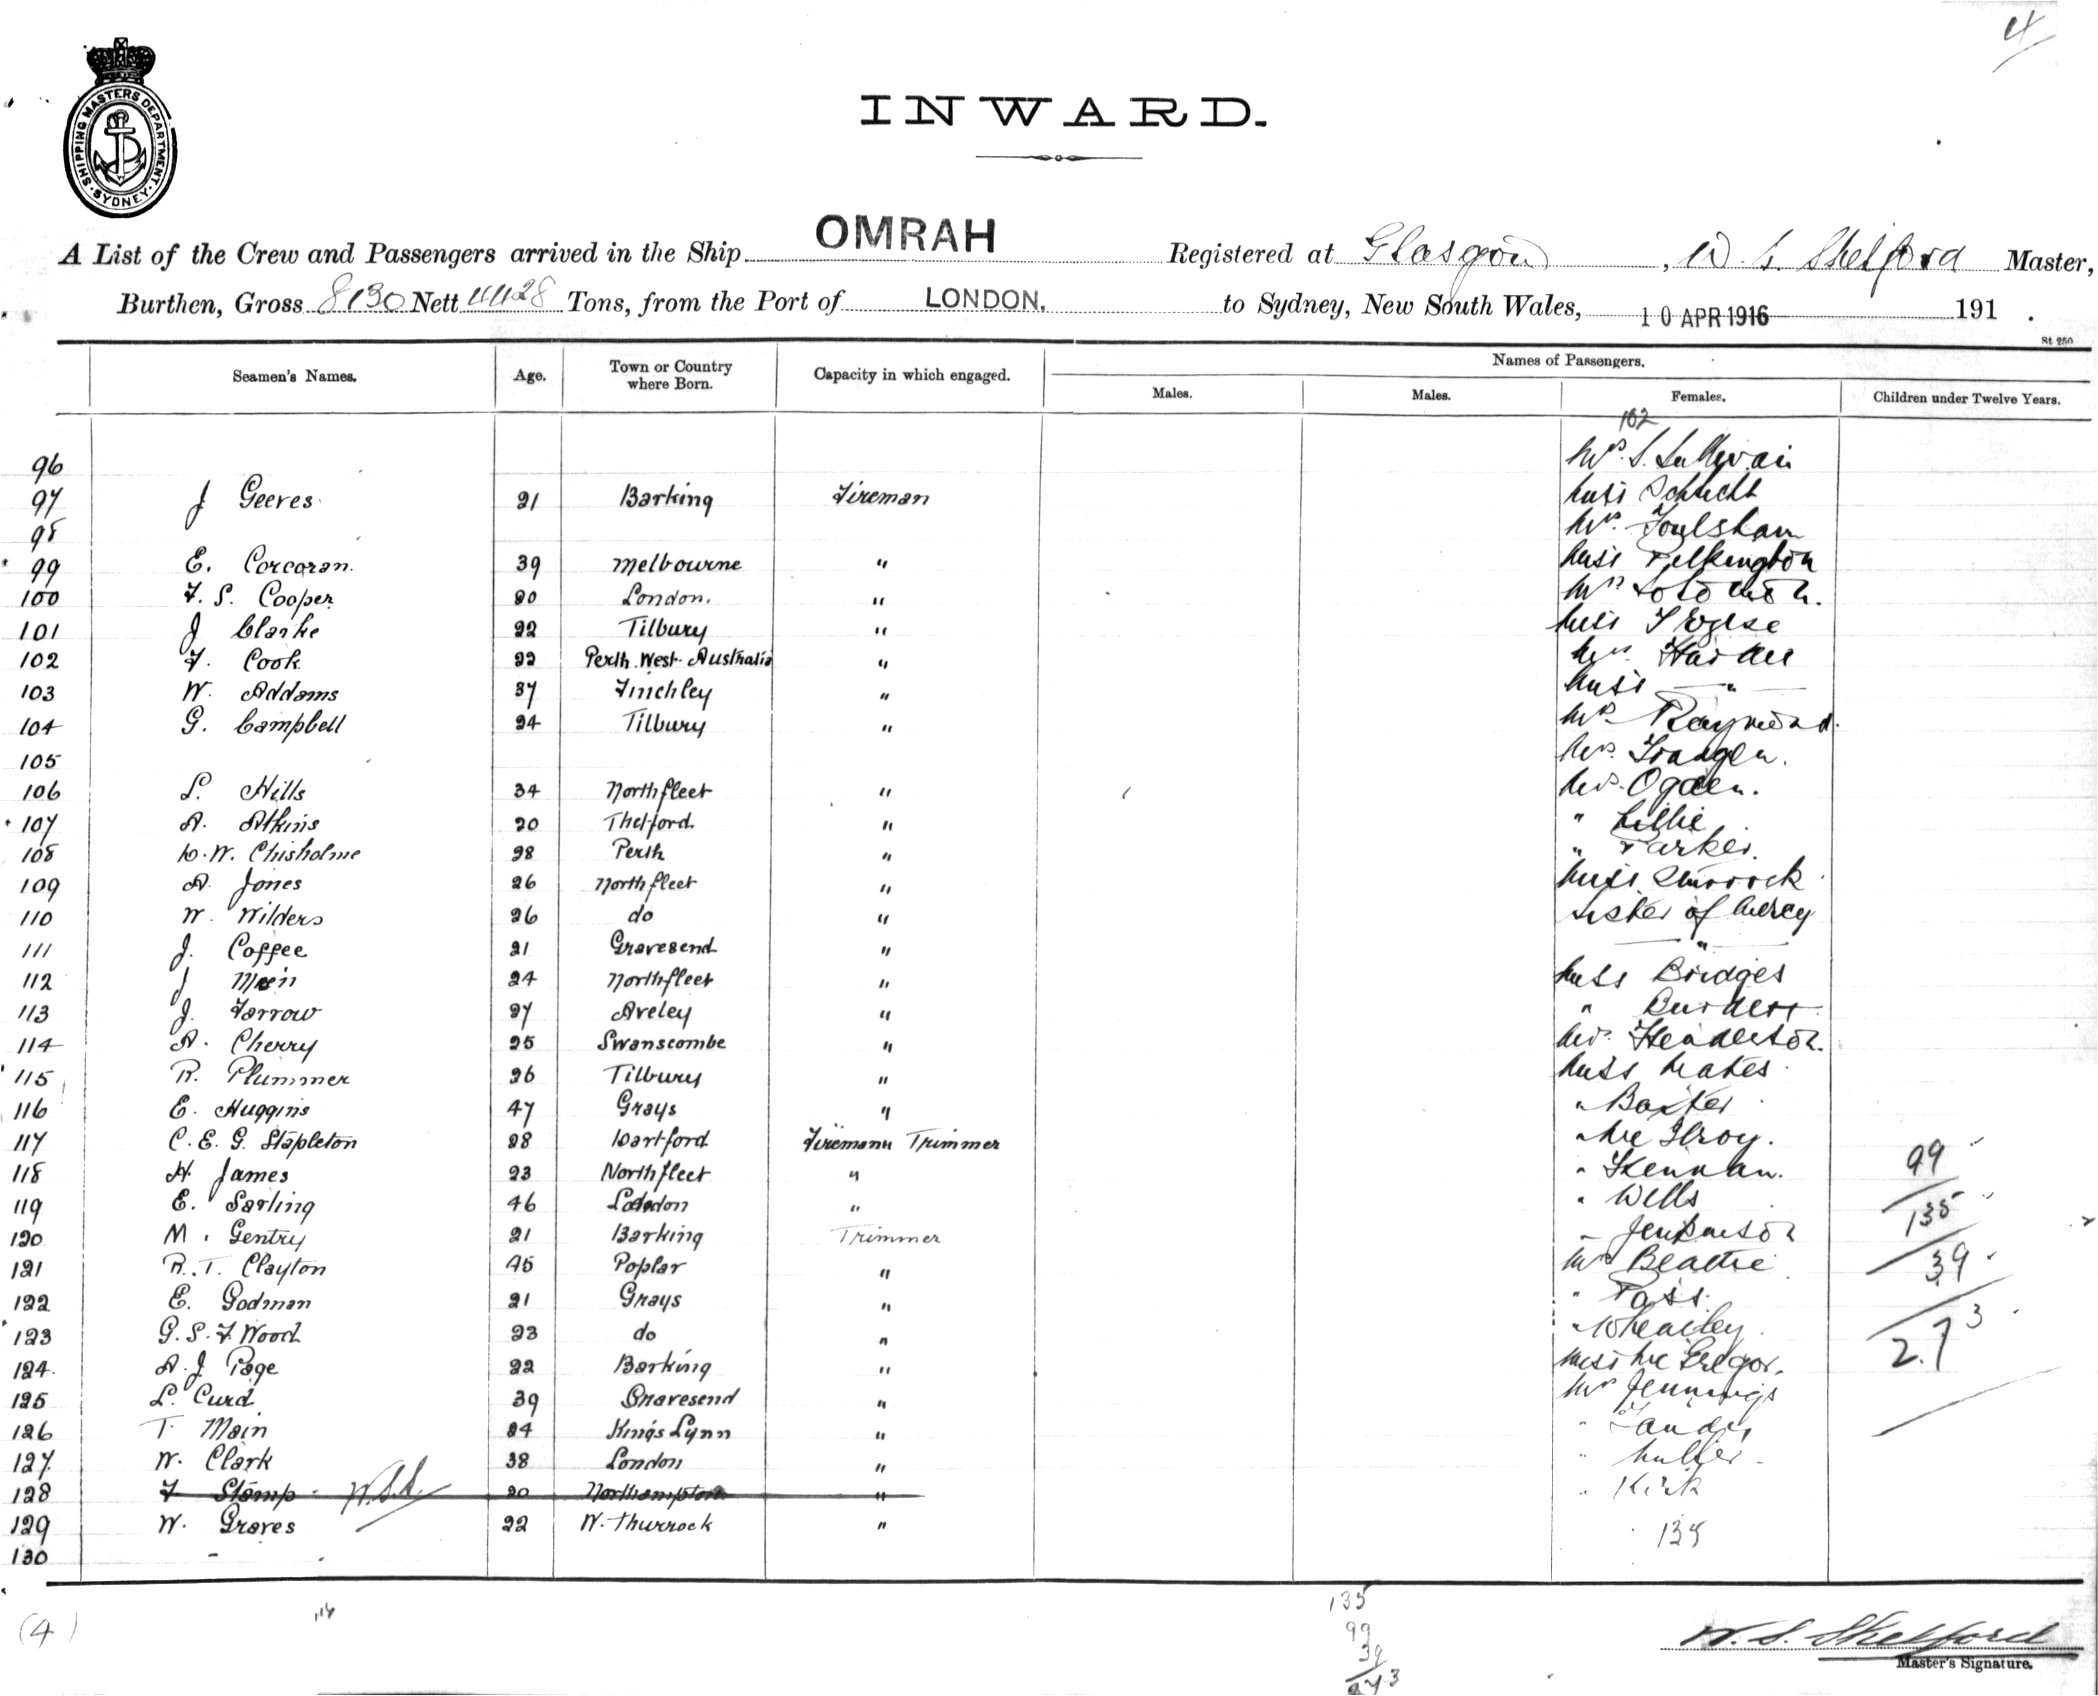 4
SHIPPING MASTERS DEPARTMENT
SYDNEY
INWARD.
A List of the Crew and Passengers arrived in the Ship OMRAH Registered at Glasgow, W. S. Shelford Master,
Burthen, Gross 8130 Nett 4428 Tons, from the Port of LONDON. to Sydney, New South Wales, 10 APR 1916 191 .
St 250
Seamen's Names. Age. Town or Country where Born. Capacity in which engaged. Names of Passengers.
Males. Males. Females. Children under Twelve Years.
102
96 Mrs. S. Sullivan
97 J Geeres 21 Barking Fireman Miss Schlicht
98 Mrs. Foulsham
99 E. Corcoran. 39 Melbourne " Miss Pilkington
100 F. S. Cooper 20 London. " Mrs Solomon.
101 J Clarke 22 Tilbury " Miss
102 F. Cook 22 Perth West Australia " Mrs.
103 W. Addams 37 Finchley " Miss "
104 G. Campbell 24 Tilbury " Mrs Raymond.
105 Mrs.
106 S. Hills 34 Northfleet " Mrs. Ogden.
107 A. Atkins 20 Thetford " " Lillie
108 D. W. Chisholme 28 Perth " " Parker.
109 A. Jones 26 Northfleet " Miss Sturrock
110 W. Wilders 26 do " Sister of Mercy
111 J. Coffee 21 Gravesend " "
112 J 24 Northfleet " Miss Bridges
113 J. Farrow 27 Aveley " " Burdett
114 A. Cherry 25 Swanscombe " Mrs. Henderson.
115 R. Plummer 26 Tilbury " Miss
116 E. Huggins 47 Grays " " Baxter
117 C. E. G. Stapleton 28 Dartford Firemann Trimmer " McIlroy.
118 H. James 23 Northfleet " " Keenan. 99
119 E. Sarling 46 London " " Wells 135
120 M. Gentry 21 Barking Trimmer " Jenkinson
121 R. T. Clayton 45 Poplar " Mrs Beattie 39
122 E. Godman 21 Grays " " Pass.
123 G. S. F. Wood 23 do " " Wheatley 273
124 A. J Page 22 Barking " Miss McGregor.
125 L. Curd 39 Gravesend " Mrs Jennings
126 T. Main 24 Kings Lynn "
127 W. Clark 38 London " "
128 F Stamp W.S.S. 20 Northampton " " Kirk
129 W. Graves 22 W. Thurrock " 135
130 -
135
99
39
273
(4)
W. S. Shelford
Master's Signature.